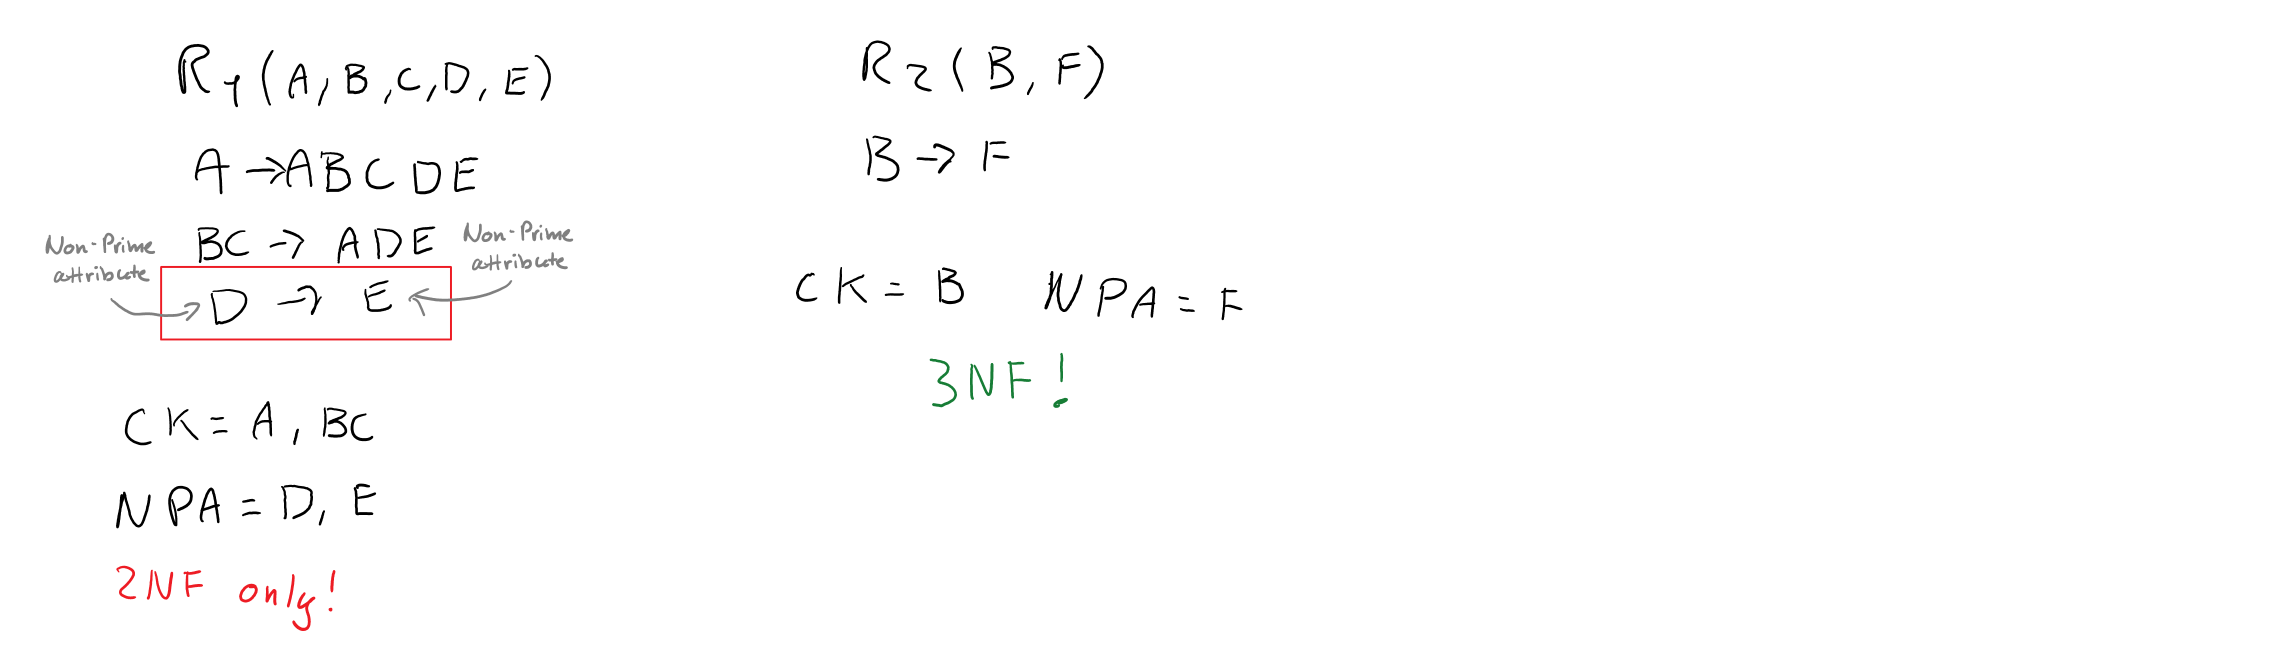 R1(A,B,C,D,E)
A→ABCDE
BC→ADE
Non-Prime
attribute
Non-Prime
attribute
D→E
CK=A,BC
NPA=D,E
2NF only!
R2(B,F)
B→F
CK=B NPA=F
3NF!